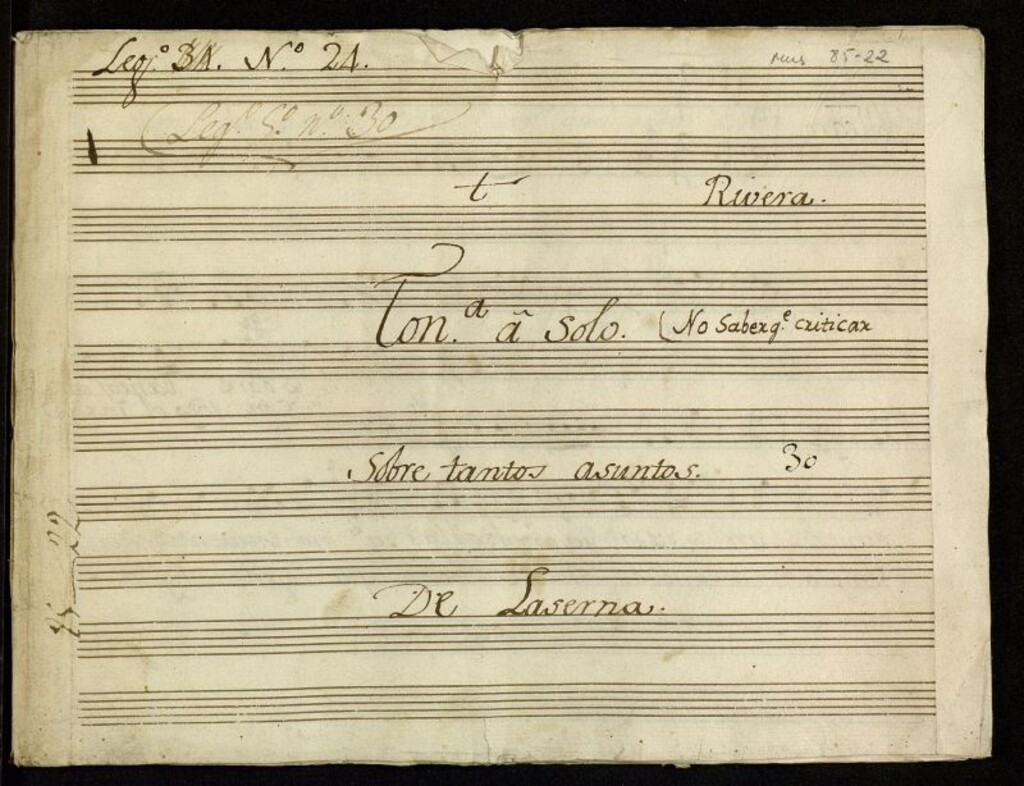 Legº 3A. N.º 21.
Mus 85-22
Leg.º 5.º n.º 30
t
Rivera.
Ton.ª â solo. (No Saber q.e criticar
Sobre tantos asuntos. 30
De Laserna.
85-22